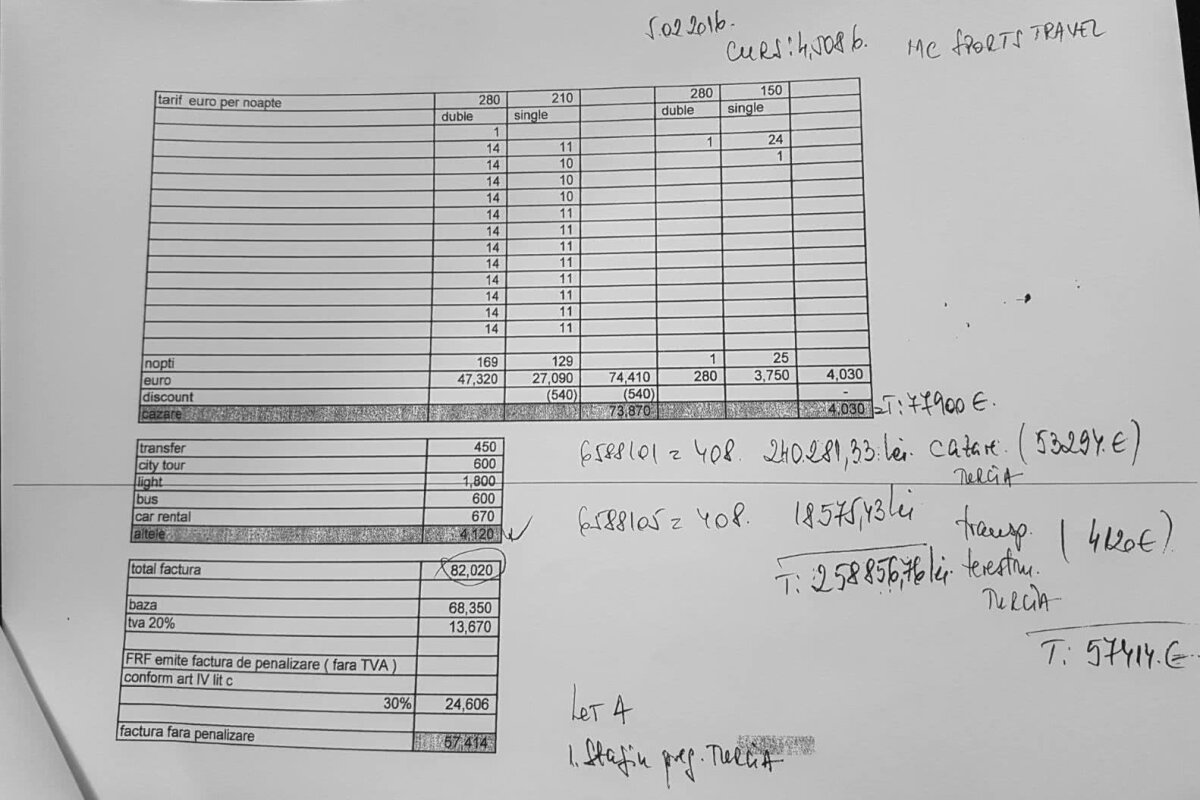 5.02.2016.
CURS: 4,5086.
MC SPORTS TRAVEL
tarif euro per noapte 280 210 280 150
duble single duble single
1
14 11 1 24
14 10 1
14 10
14 10
14 11
14 11
14 11
14 11
14 11
14 11
14 11
14 11
nopti 169 129 1 25
euro 47,320 27,090 74,410 280 3,750 4,030
discount (540) (540) -
cazare 73,870 4,030 = T: 77900 €.
transfer 450
city tour 600
light 1,800
bus 600
car rental 670
altele 4,120
6588101 = 408. 240.281,33 lei cazare. (53294.€)
TURCIA
6588105 = 408. 18575,43 lei transp. (4120€).
T: 258856,76 lei terestru.
TURCIA
T: 57414.€
total factura 82,020
baza 68,350
tva 20% 13,670
FRF emite factura de penalizare ( fara TVA )
conform art IV lit c
30% 24,606
factura fara penalizare 57,414
LOT A
1. Stagiu preg. TURCIA